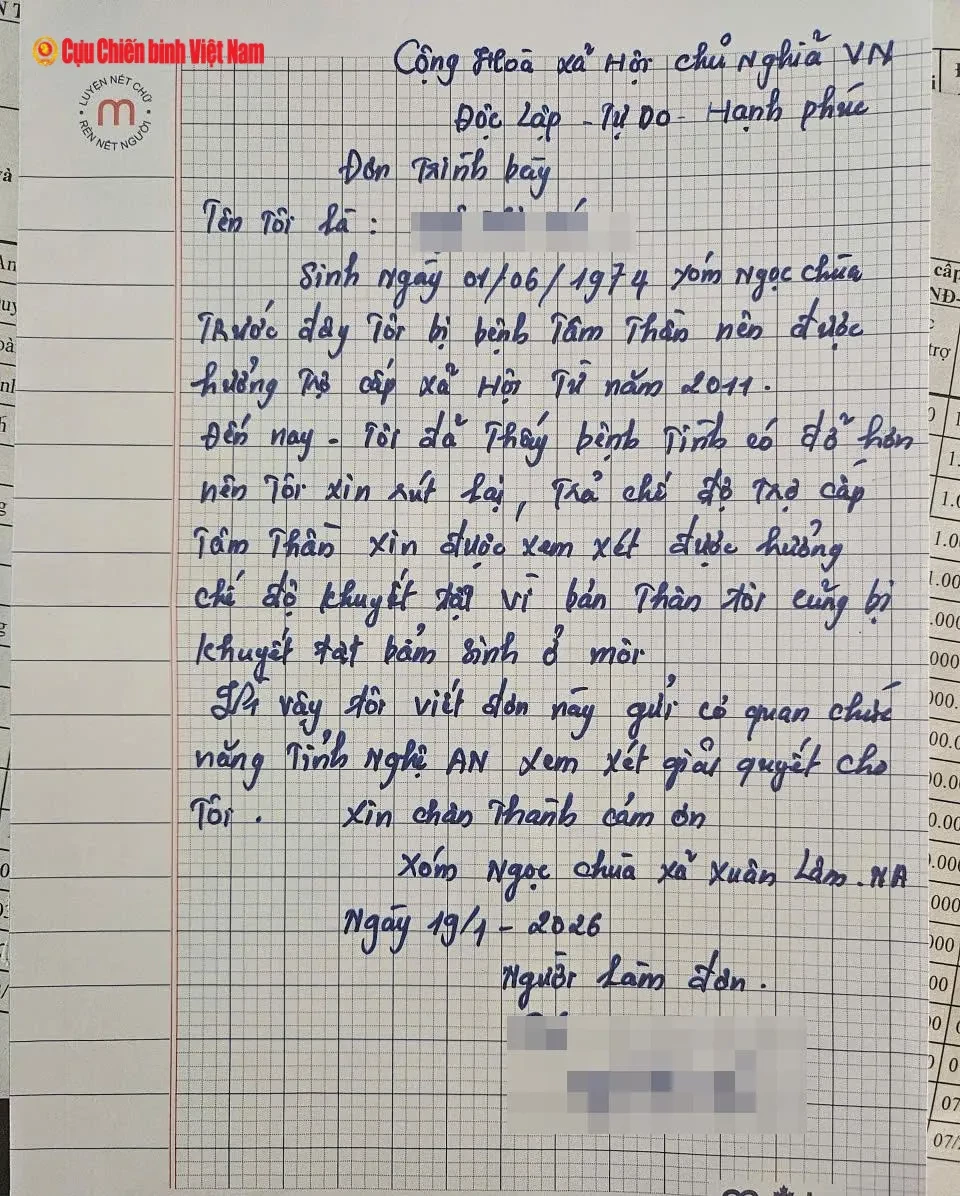 Cựu Chiến binh Việt Nam
LUYỆN NÉT CHỮ
m
RÈN NẾT NGƯỜI
Cộng Hoà xã Hội chủ Nghĩa VN
Độc Lập - Tự Do - Hạnh phúc
Đơn Trình bày
Tên Tôi là :
Sinh Ngày 01/06/1974 xóm Ngọc chùa
Trước đây Tôi bị bệnh Tâm Thần nên được
hưởng Trợ cấp xã Hội Từ năm 2011.
Đến nay - Tôi đã Thấy bệnh Tình có đỡ hơn
nên Tôi xin rút lại, Trả chế độ Trợ cấp
Tâm Thần xin được xem xét được hưởng
chế độ khuyết tật vì bản Thân tôi cũng bị
khuyết tật bẩm sinh ở môi
vậy tôi viết đơn này gửi cơ quan chức
năng Tỉnh Nghệ AN xem xét giải quyết cho
Tôi . xin chân Thành cám ơn
xóm Ngọc chùa xã xuân Lâm. NA
Ngày 19/1 - 2026
Người làm đơn .